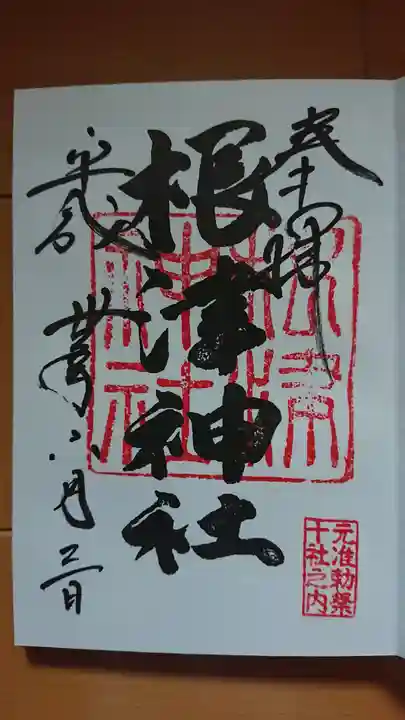 奉拝
根津神社
根津神社
元准勅祭
十社之内
平成丗年六月 日